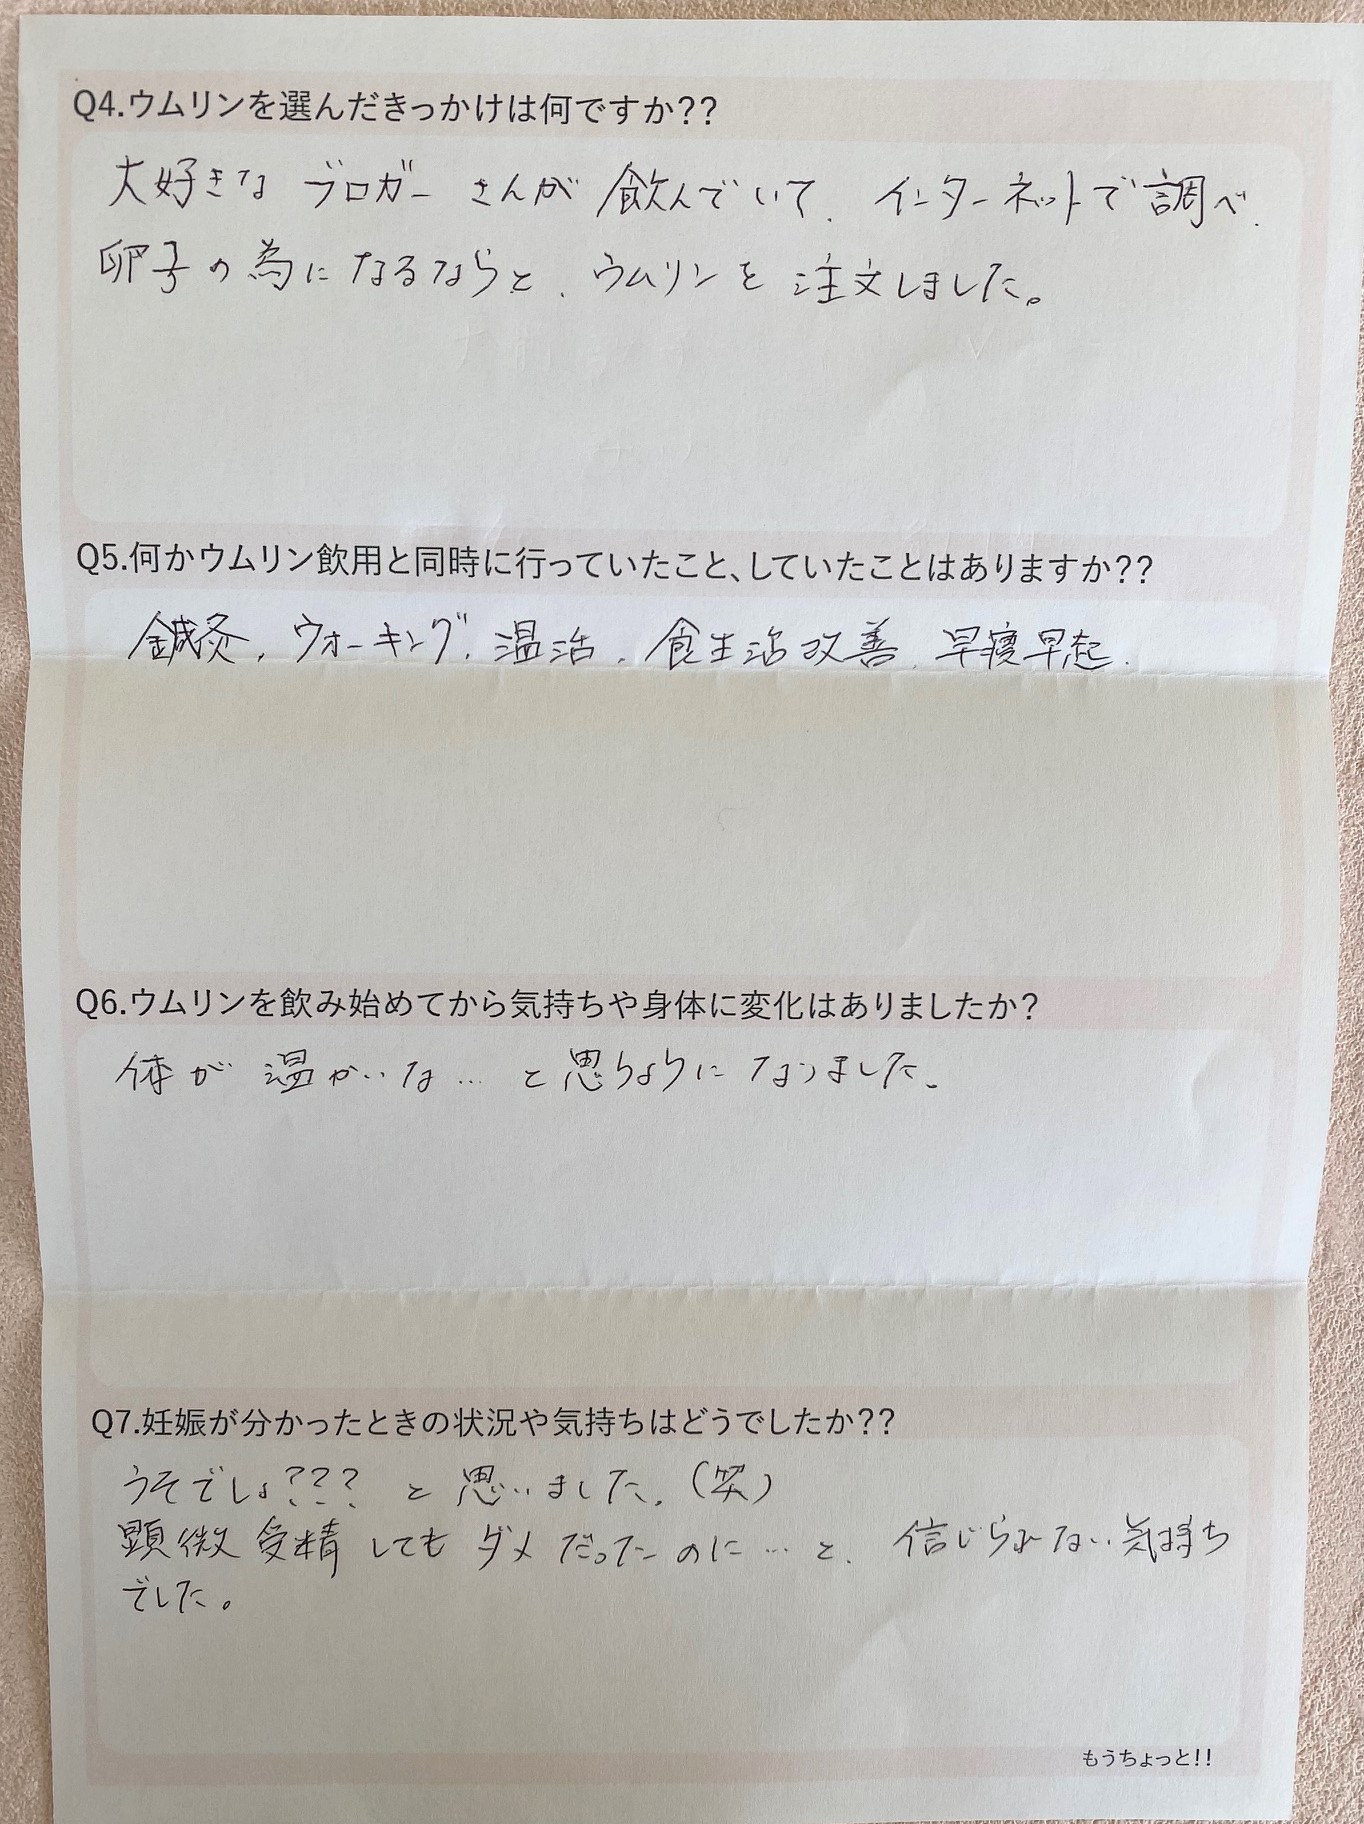 Q4.ウムリンを選んだきっかけは何ですか??
大好きな ブロガーさんが 飲んでいて、インターネットで調べ、
卵子の為になるならと、ウムリンを 注文しました。
Q5.何かウムリン飲用と同時に行っていたこと、していたことはありますか??
鍼灸、ウォーキング、温活、食生活改善、早寝早起、
Q6.ウムリンを飲み始めてから気持ちや身体に変化はありましたか?
体が 温かいな… と思うようになりました。
Q7.妊娠が分かったときの状況や気持ちはどうでしたか??
うそでしょ??? と 思いました。(笑)
顕微受精してもダメだったのに… と、信じられない気持ち
でした。
もうちょっと!!